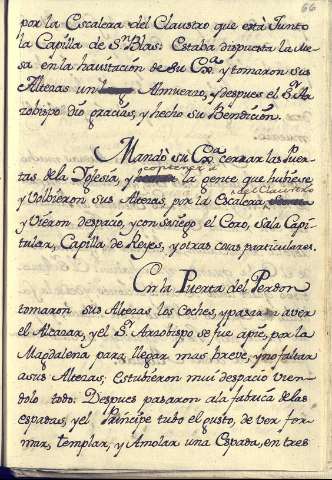 66
por la Escalera del Claustro que està Junto
la Capilla de Sn. Blas: Estaba dispuesta la Me-
sa en la havitación de su Exa. y tomaron sus
Altezas un Almuerzo, y despues el Sr. Ar-
zobispo dió gracias, y hecho su Bendicion.
Mandó su Exa. cerrar las Puer-
tas de la Yglesia, y contener a la gente que hubiese,
y Volbieron sus Altezas, por la Escalera del Claustro
y Vieron despacio, y con sosiego el Coro, Sala Capi-
tular, Capilla de Reyes, y otras cosas particulares.
En la Puerta del Perdon
tomaron sus Altezas los Coches, y pasar a ver
el Alcazar, y el Sr. Arzobispo se fue apie, por la
Magdalena para llegar mas breve, y no faltar
a sus Altezas, Estubieron mui despacio vien-
dolo todo: Despues pasaron a la fabrica de las
espadas, y el Principe tubo el gusto, de ver for-
mar, templar, y Amolar una Espada, en tres